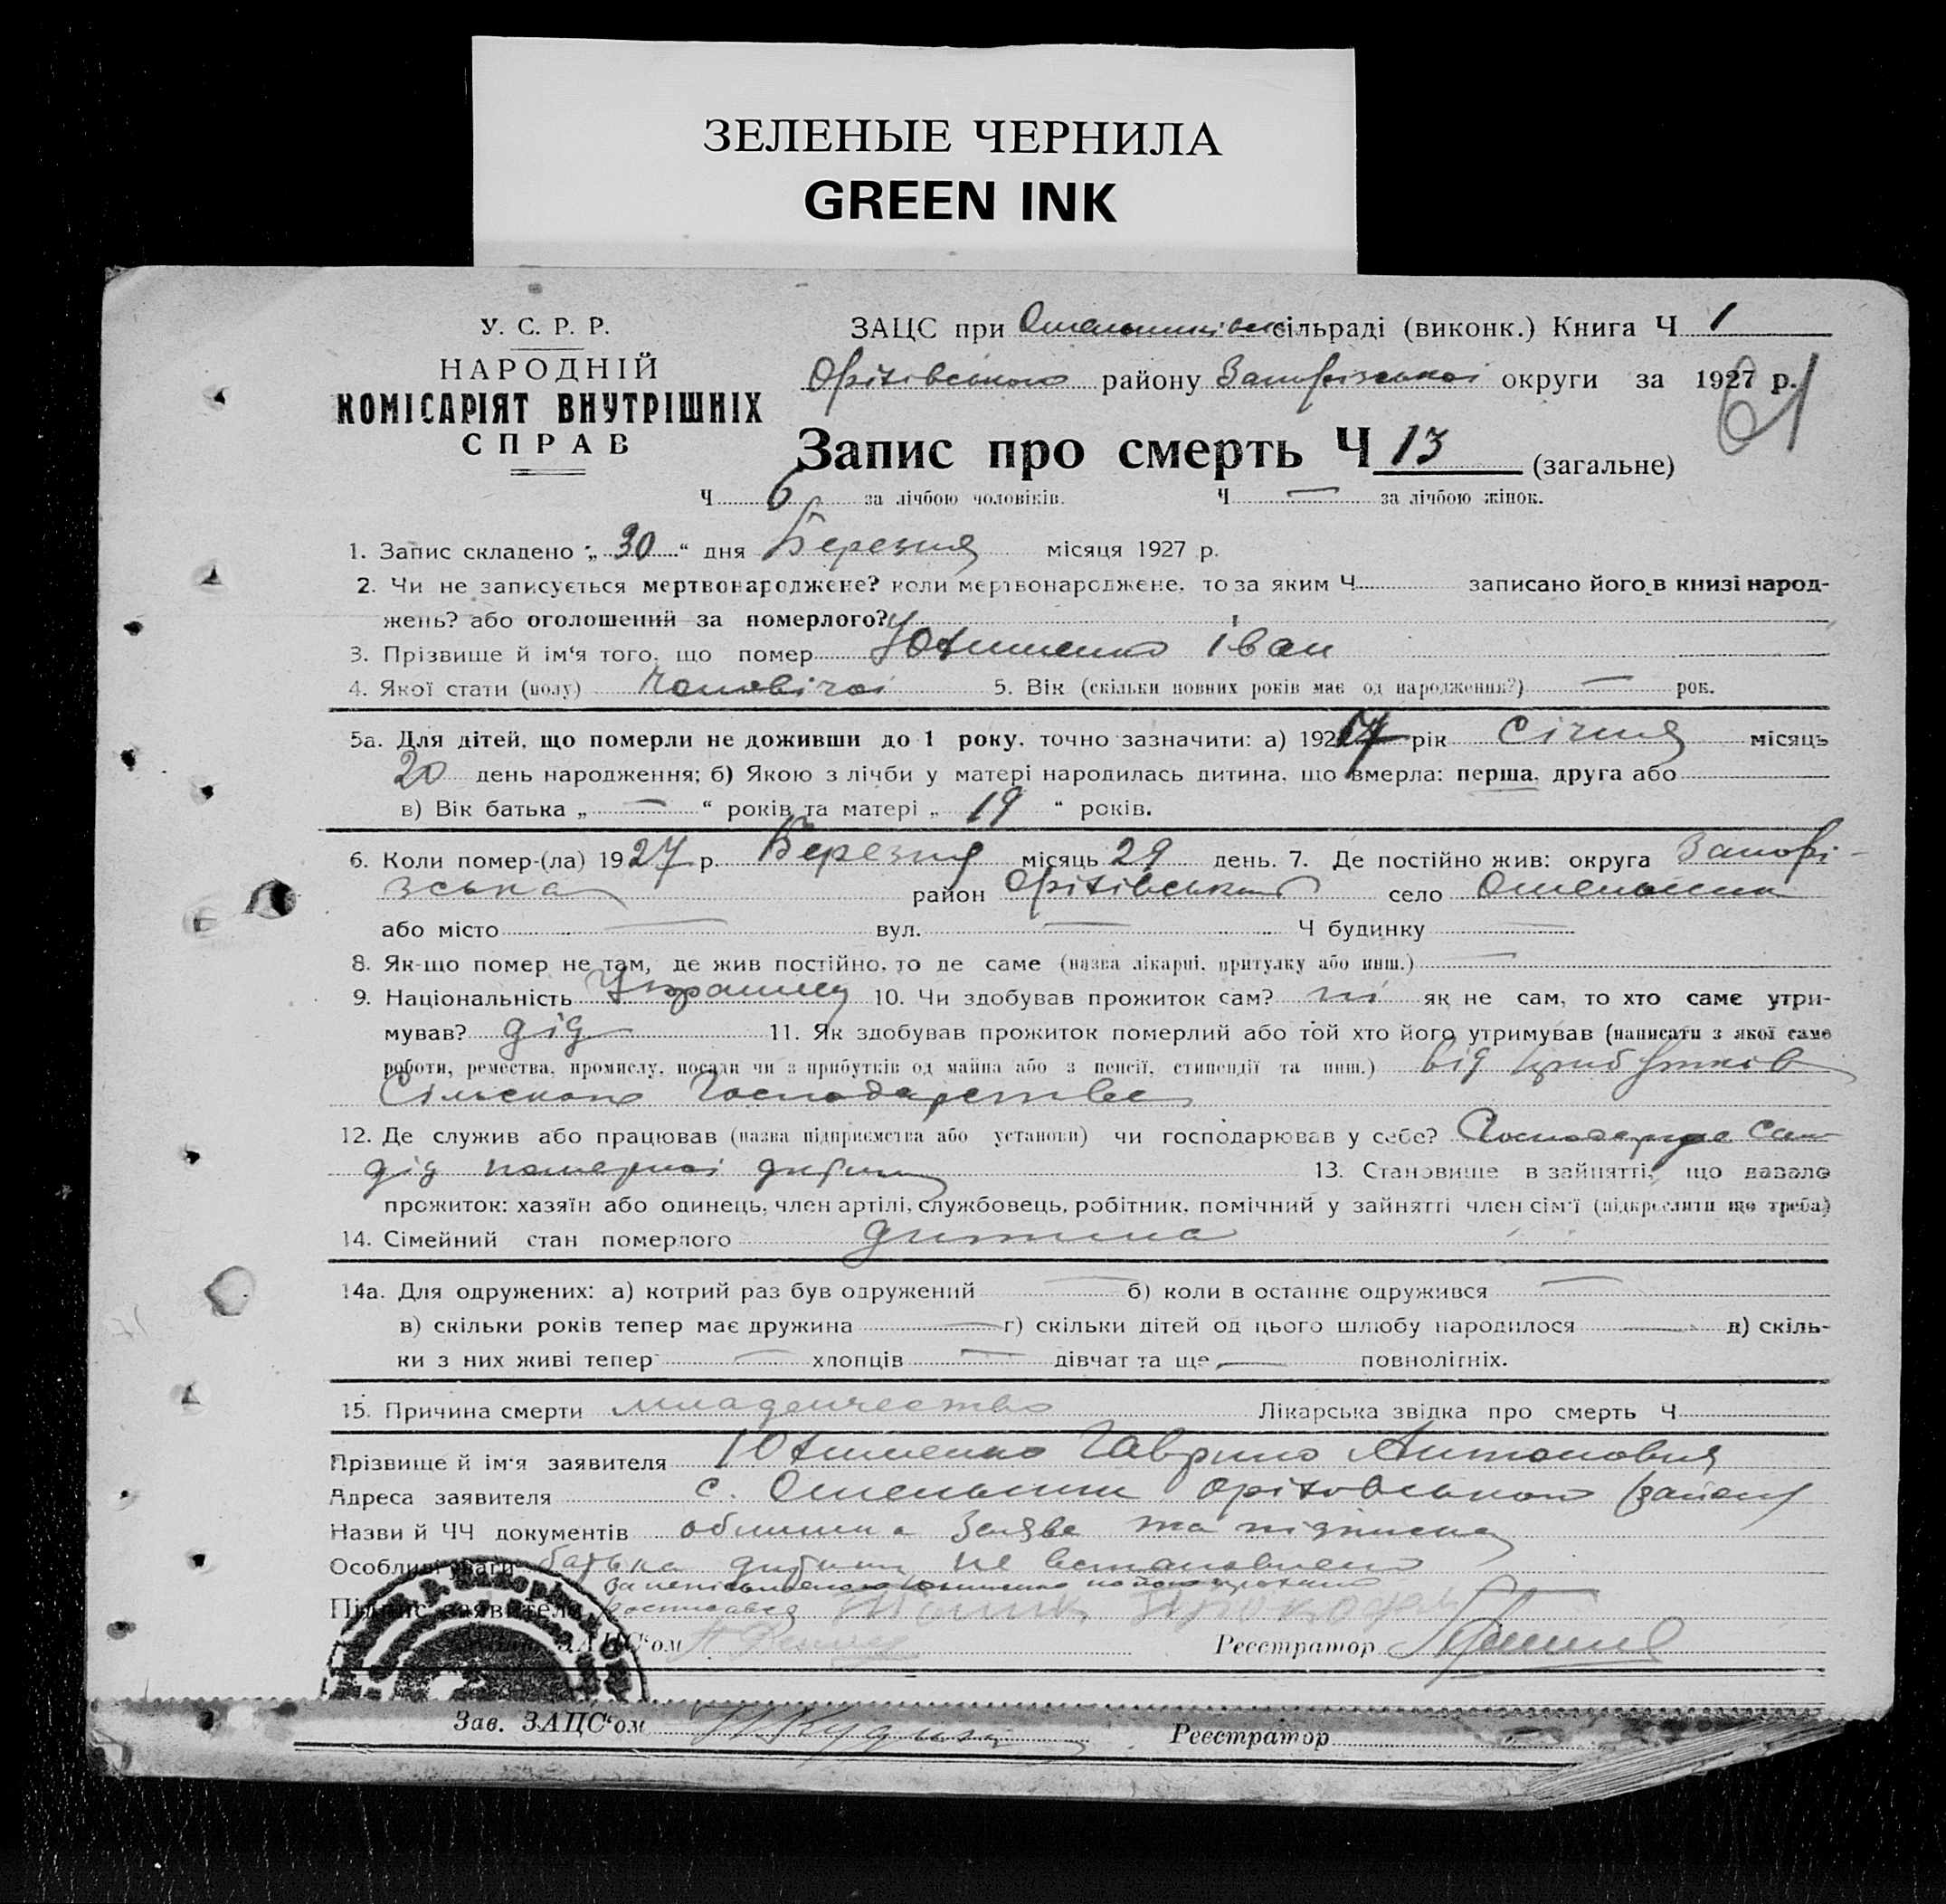 ЗЕЛЕНЫЕ ЧЕРНИЛА
GREEN INK
У. С. Р. Р.
НАРОДНІЙ
КОМІСАРІЯТ ВНУТРІШНІХ
СПРАВ
ЗАЦС при сільраді (виконк.) Книга Ч 1
Оріхівського району Запорізської округи за 1927 р.
61
Запис про смерть Ч 13 (загальне)
Ч 6 за лічбою чоловіків. Ч — за лічбою жінок.
1. Запис складено „ 30 “ дня Березня місяця 1927 р.
2. Чи не записується мертвонароджене? коли мертвонароджене, то за яким Ч записано його в книзі народ-
жень? або оголошений за померлого?
3. Прізвище й ім‘я того, що помер Юхименко Іван
4. Якої стати (полу) чоловічої 5. Вік (скільки повних років має од народження?) — рок.
5а. Для дітей, що померли не доживши до 1 року, точно зазначити: а) 1927 рік Січня місяць
20 день народження; б) Якою з лічби у матері народилась дитина, що вмерла: перша, друга або
в) Вік батька „ — “ років та матері „ 19 “ років.
6. Коли помер-(ла) 1927 р. Березня місяць 29 день. 7. Де постійно жив: округа Запорі-
зська район Оріхівський село Омельник
або місто — вул. — Ч будинку —
8. Як-що помер не там, де жив постійно, то де саме (назва лікарні, притулку або инш.) —
9. Національність Українец 10. Чи здобував прожиток сам? ні як не сам, то хто саме утри-
мував? дід 11. Як здобував прожиток померлий або той хто його утримував (написати з якої саме
роботи, ремества, промислу, посади чи з прибутків од майна або з пенсії, стипендії та инш.) від прибутків
Сільского Господарства
12. Де служив або працював (назва підприємства або установи) чи господарював у себе? Господарює сам
дід померлої дитини 13. Становище в зайнятті, що давало
прожиток: хазяїн або одинець, член артілі, службовець, робітник, помічний у зайнятті член сім‘ї (підкреслити що треба)
14. Сімейний стан померлого дитина
14а. Для одружених: а) котрий раз був одружений — б) коли в останнє одружився —
в) скільки років тепер має дружина — г) скільки дітей од цього шлюбу народилося — д) скіль-
ки з них живі тепер — хлопців — дівчат та ще — повнолітніх.
15. Причина смерти младенчество Лікарська звідка про смерть Ч
Прізвище й ім‘я заявителя Юхименко Гаврило Антонович
Адреса заявителя с. Омельник Оріховського району
Назви й ЧЧ документів заява та підписка
Особливі уваги батька дитини не встановлено
Підпис заявителя
ЗАЦС‘ом Реєстратор
Зав. ЗАЦС‘ом Реєстратор